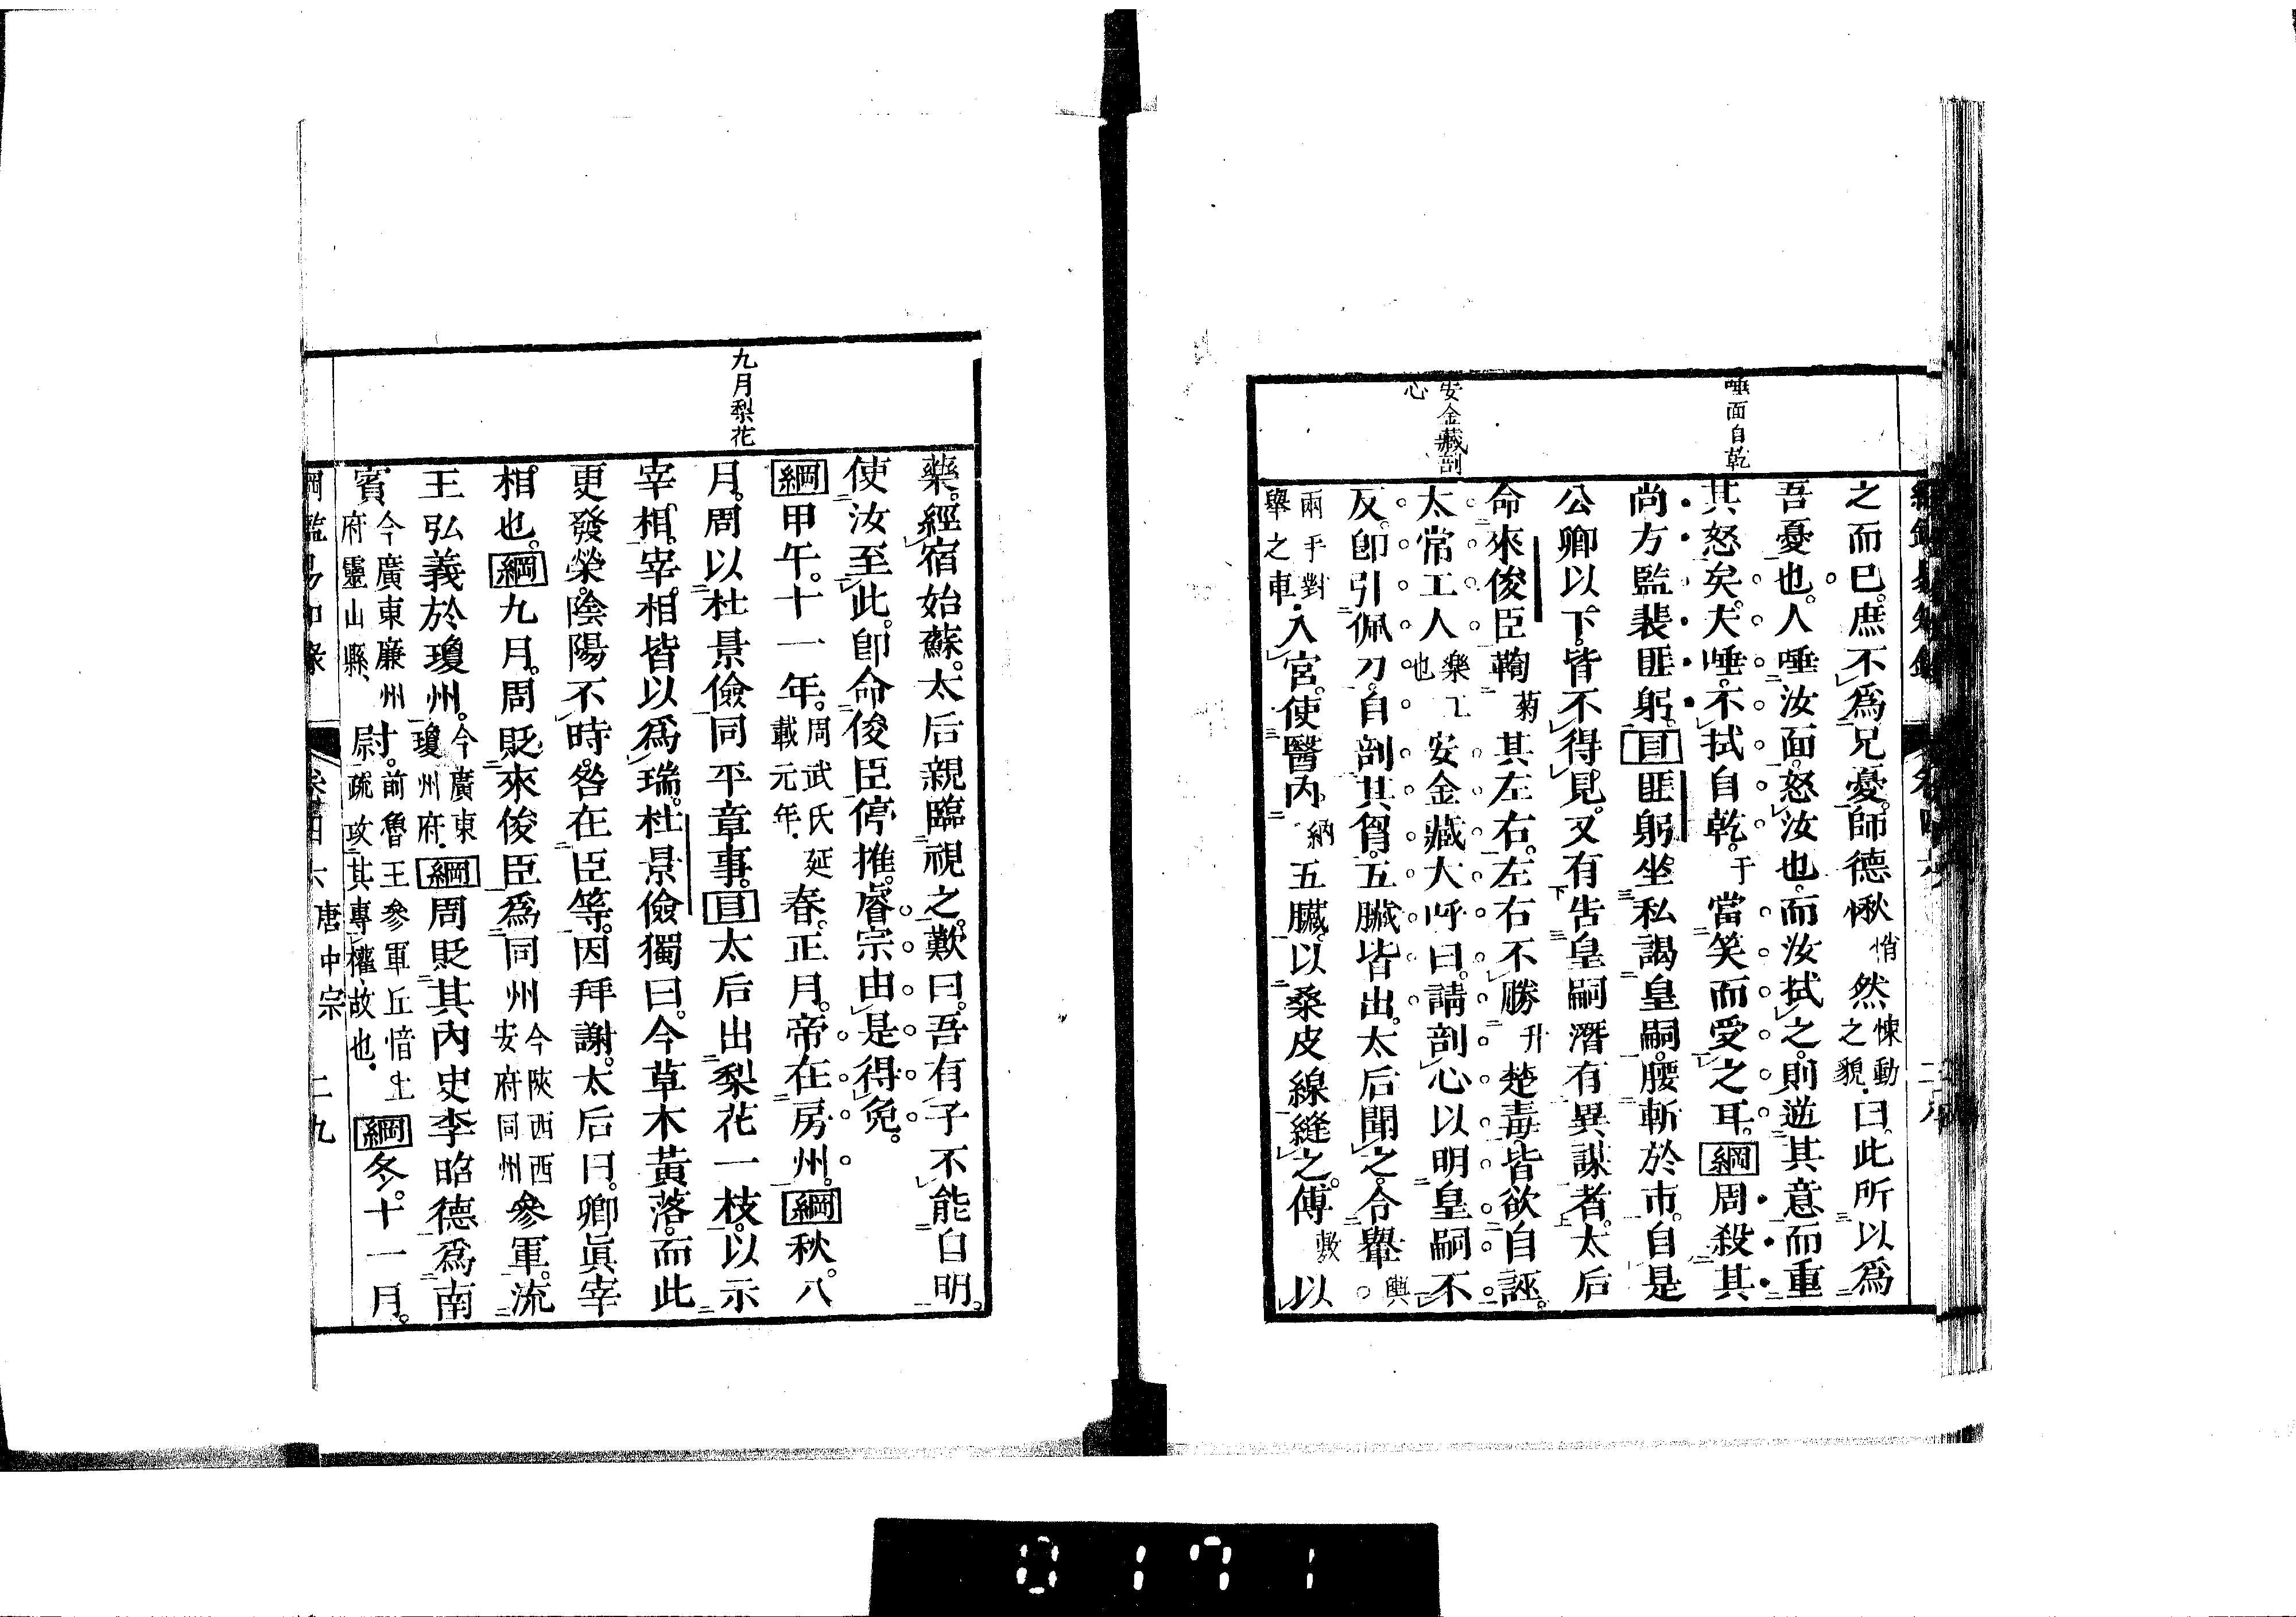 唾面自乾
安金藏剖
心
之而巳。庶不爲兄憂。師德愀悄然悚動之貌.曰。此所以爲
吾憂也。人唾汝面。怒汝也。而汝拭之。則逆其意而重
其怒矣。夫唾。不拭自乾。于當笑而受之耳。綱周殺其
尚方監裴匪躬。目匪躬坐私謁皇嗣。腰斬於市。自是
公卿以下。皆不得見。又有吿皇嗣潛有異謀者。太后
命來俊臣鞫菊其左右。左右不勝升楚毒。皆欲自誣。
太常工人樂工也安金藏大呼曰。請剖心以明皇嗣不
反。卽引佩刀。自剖其胷。五臟皆出。太后聞之。令轝輿
兩手對舉之車.入宮。使醫內。納五臟。以桑皮線縫之。傅敷以
九月梨花
藥。經宿始蘇。太后親臨視之。歎曰。吾有子不能自明。
使汝至此。卽命俊臣停推。睿宗由是得免。
綱甲午。十一年。周武氏延載元年.春。正月。帝在房州。綱秋。八
月。周以杜景儉同平章事。目太后出梨花一枝。以示
宰相。宰相皆以爲瑞。杜景儉獨曰。今草木黃落。而此
更發榮。陰陽不時。咎在臣等。因拜謝。太后曰。卿眞宰
相也。綱九月。周貶來俊臣爲同州今陝西西安府同州參軍。流
王弘義於瓊州。今廣東瓊州府.綱周貶其內史李昭德爲南
賓今廣東廉州府靈山縣、尉。前魯王參軍丘愔上疏攻其專權、故也.綱冬。十一月。
綱鑑易知錄 卷四六 唐中宗 二九